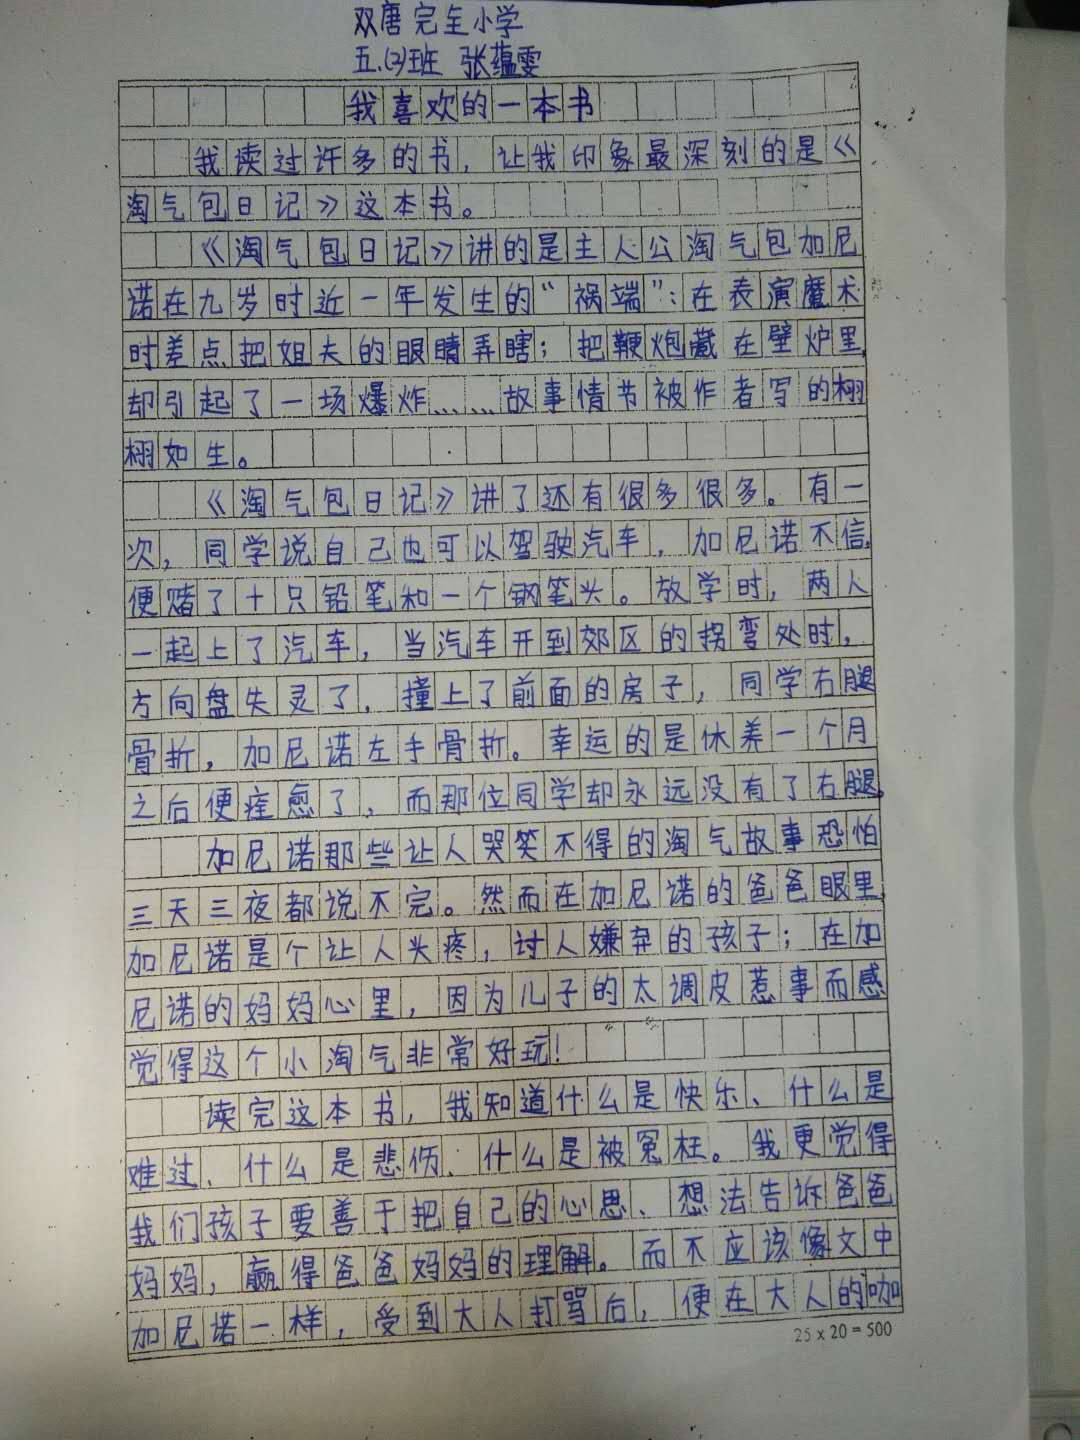 双唐完全小学
五.(2)班 张蕴雯
我喜欢的一本书
我读过许多的书，让我印象最深刻的是《
淘气包日记》这本书。
《淘气包日记》讲的是主人公淘气包加尼
诺在九岁时近一年发生的“祸端”：在表演魔术
时差点把姐夫的眼睛弄瞎；把鞭炮藏在壁炉里，
却引起了一场爆炸……故事情节被作者写的栩
栩如生。
《淘气包日记》讲了还有很多很多。有一
次，同学说自己也可以驾驶汽车，加尼诺不信，
便赌了十只铅笔和一个钢笔头。放学时，两人
一起上了汽车，当汽车开到郊区的拐弯处时，
方向盘失灵了，撞上了前面的房子，同学右腿
骨折，加尼诺左手骨折。幸运的是休养一个月
之后便痊愈了，而那位同学却永远没有了右腿。
加尼诺那些让人哭笑不得的淘气故事恐怕
三天三夜都说不完。然而在加尼诺的爸爸眼里，
加尼诺是个让人头疼，讨人嫌弃的孩子；在加
尼诺的妈妈心里，因为儿子的太调皮惹事而感
觉得这个小淘气非常好玩！
读完这本书，我知道什么是快乐、什么是
难过、什么是悲伤、什么是被冤枉。我更觉得
我们孩子要善于把自己的心思、想法告诉爸爸
妈妈，赢得爸爸妈妈的理解。而不应该像文中
加尼诺一样，受到大人打骂后，便在大人的咖
25 x 20 = 500